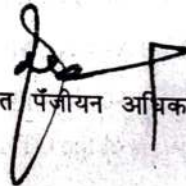 त पँजीयन अधिक